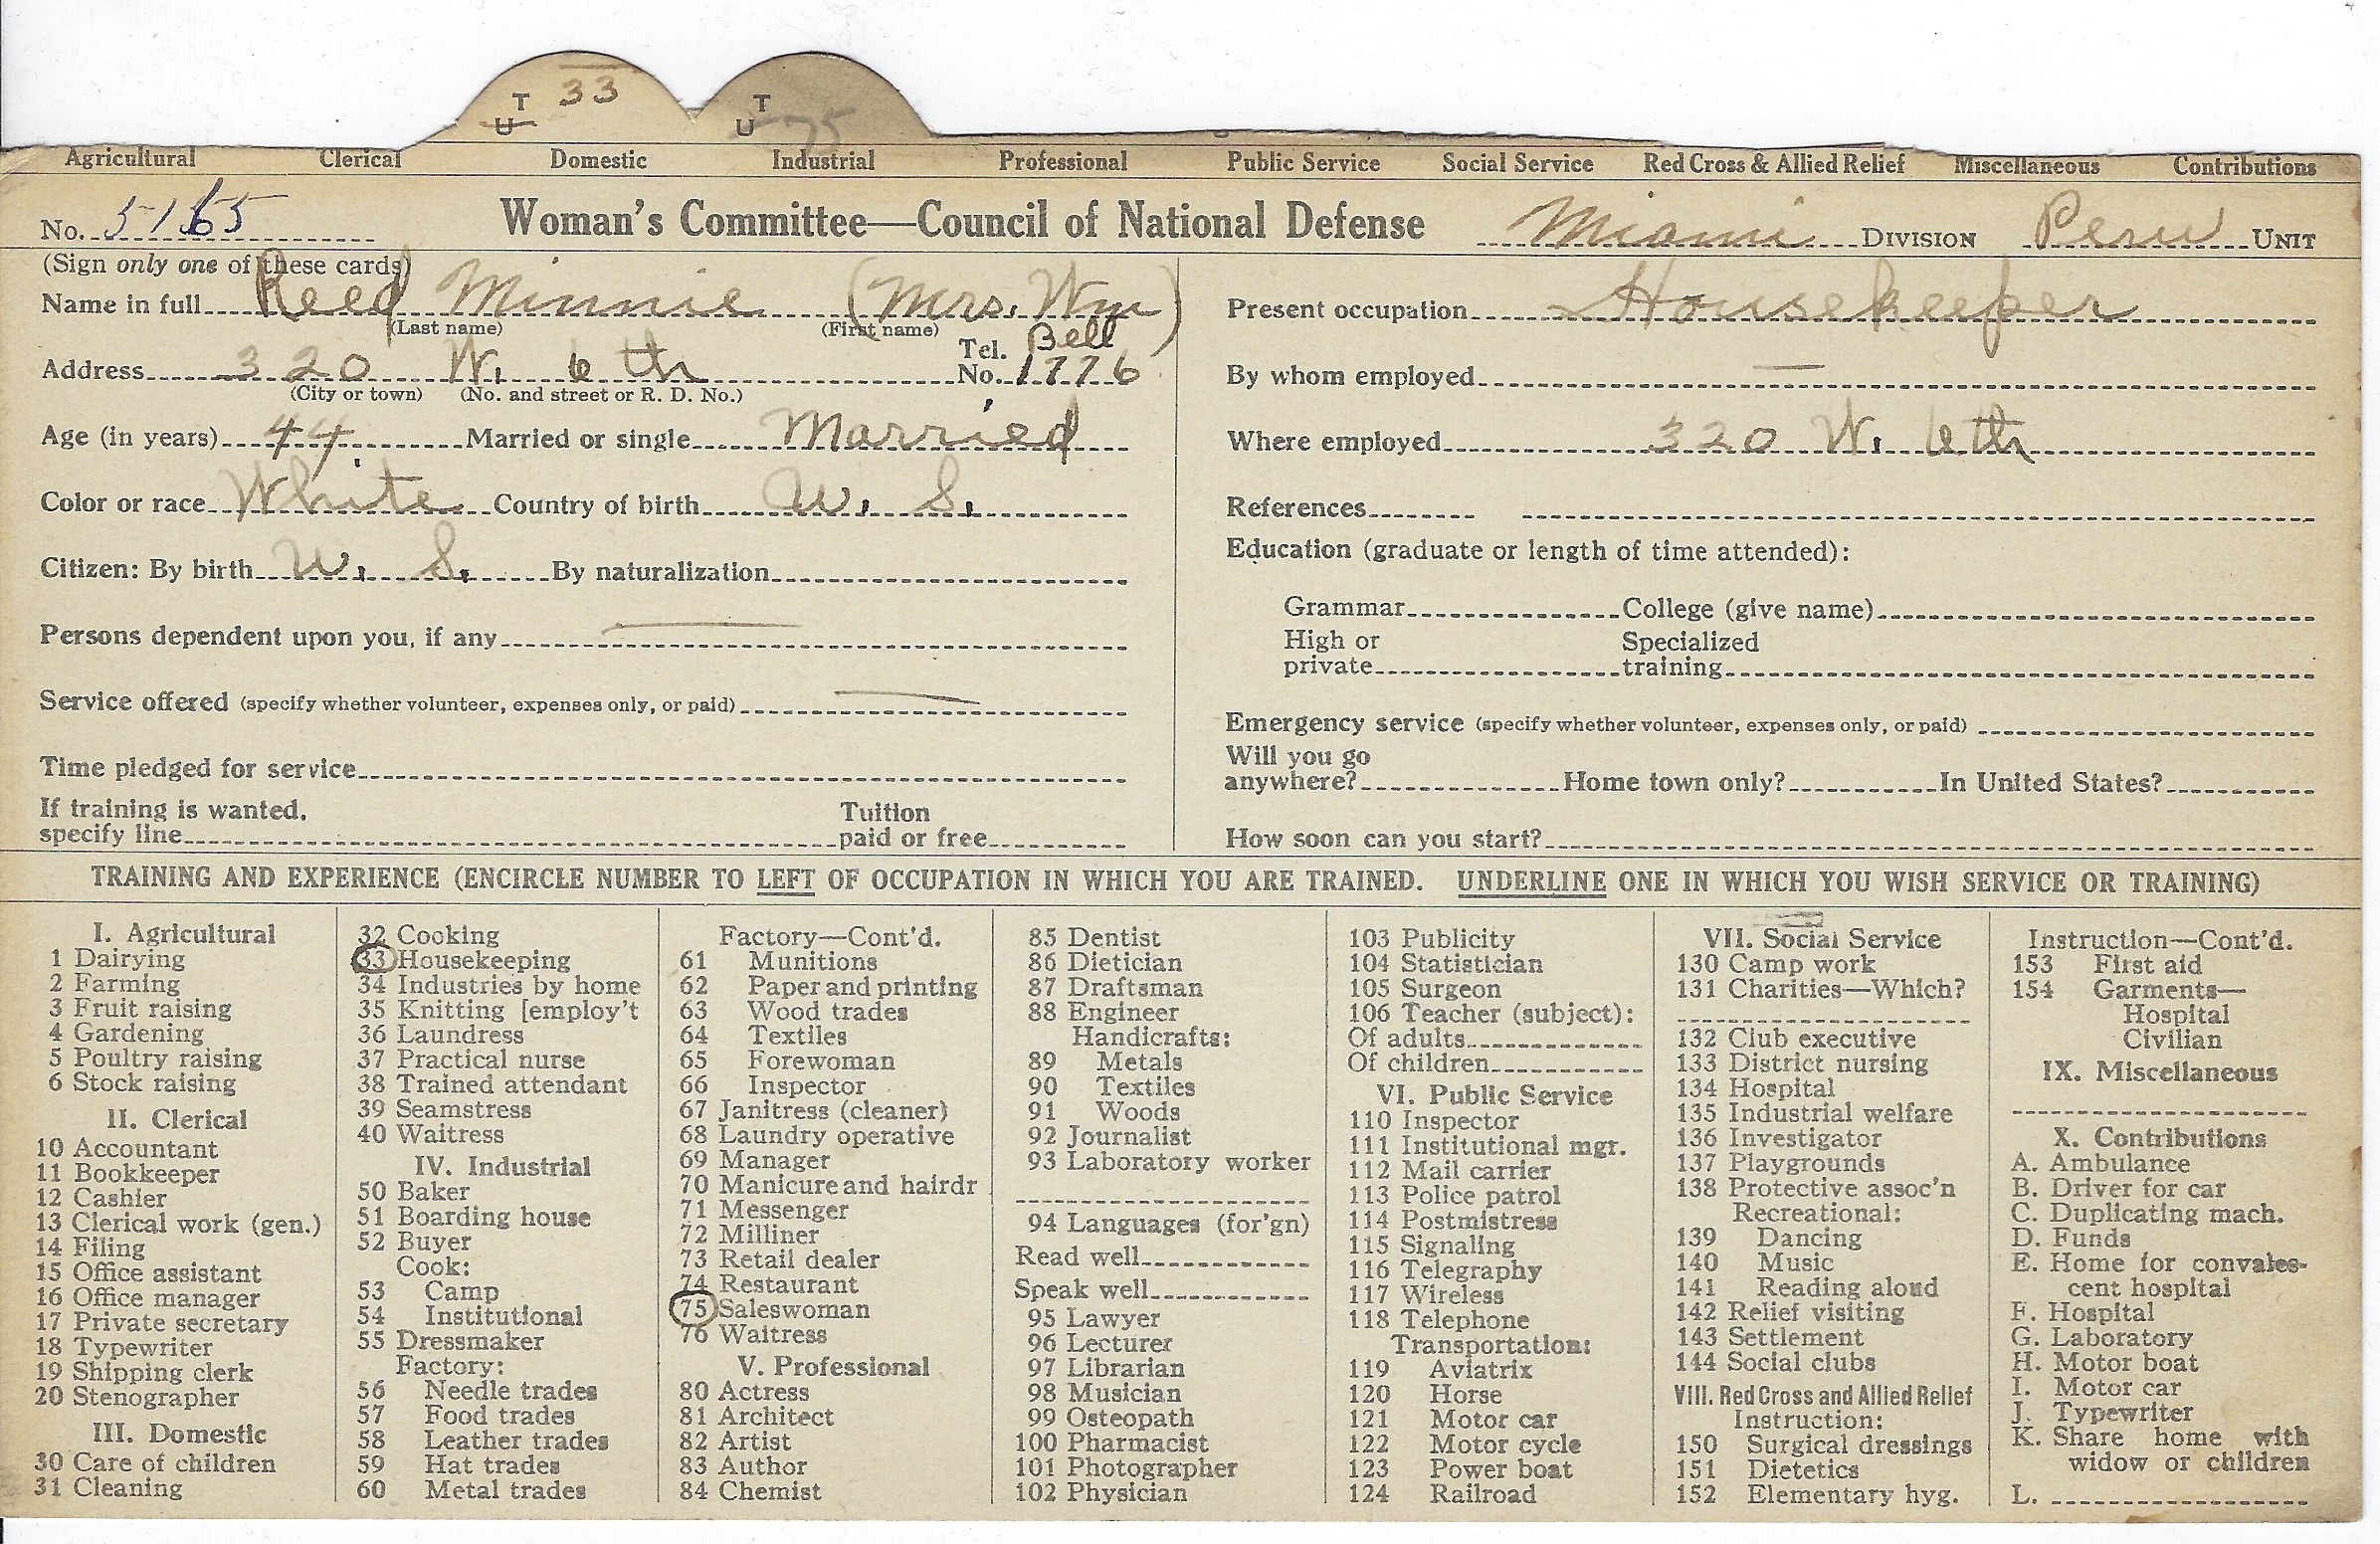 T 33 T
U U 75
Agricultural Clerical Domestic Industrial Professional Public Service Social Service Red Cross & Allied Relief Miscellaneous Contributions
No. 5165 Woman's Committee—Council of National Defense Miami DIVISION Peru UNIT
(Sign only one of these cards)
Name in full Reed Minnie (Mrs. Wm)
(Last name) (First name)
Address 320 W. 6th Tel. No. Bell 1776
(City or town) (No. and street or R. D. No.)
Age (in years) 44 Married or single Married
Color or race White Country of birth U. S.
Citizen: By birth U. S. By naturalization
Persons dependent upon you, if any
Service offered (specify whether volunteer, expenses only, or paid)
Time pledged for service
If training is wanted, specify line Tuition paid or free
Present occupation Housekeeper
By whom employed
Where employed 320 W. 6th
References
Education (graduate or length of time attended):
Grammar College (give name)
High or private Specialized training
Emergency service (specify whether volunteer, expenses only, or paid)
Will you go anywhere? Home town only? In United States?
How soon can you start?
TRAINING AND EXPERIENCE (ENCIRCLE NUMBER TO LEFT OF OCCUPATION IN WHICH YOU ARE TRAINED. UNDERLINE ONE IN WHICH YOU WISH SERVICE OR TRAINING)
I. Agricultural
1 Dairying
2 Farming
3 Fruit raising
4 Gardening
5 Poultry raising
6 Stock raising
II. Clerical
10 Accountant
11 Bookkeeper
12 Cashier
13 Clerical work (gen.)
14 Filing
15 Office assistant
16 Office manager
17 Private secretary
18 Typewriter
19 Shipping clerk
20 Stenographer
III. Domestic
30 Care of children
31 Cleaning
32 Cooking
33 Housekeeping
34 Industries by home
35 Knitting [employ't
36 Laundress
37 Practical nurse
38 Trained attendant
39 Seamstress
40 Waitress
IV. Industrial
50 Baker
51 Boarding house
52 Buyer
Cook:
53 Camp
54 Institutional
55 Dressmaker
Factory:
56 Needle trades
57 Food trades
58 Leather trades
59 Hat trades
60 Metal trades
Factory—Cont'd.
61 Munitions
62 Paper and printing
63 Wood trades
64 Textiles
65 Forewoman
66 Inspector
67 Janitress (cleaner)
68 Laundry operative
69 Manager
70 Manicure and hairdr
71 Messenger
72 Milliner
73 Retail dealer
74 Restaurant
75 Saleswoman
76 Waitress
V. Professional
80 Actress
81 Architect
82 Artist
83 Author
84 Chemist
85 Dentist
86 Dietician
87 Draftsman
88 Engineer
Handicrafts:
89 Metals
90 Textiles
91 Woods
92 Journalist
93 Laboratory worker
94 Languages (for'gn)
Read well
Speak well
95 Lawyer
96 Lecturer
97 Librarian
98 Musician
99 Osteopath
100 Pharmacist
101 Photographer
102 Physician
103 Publicity
104 Statistician
105 Surgeon
106 Teacher (subject):
Of adults
Of children
VI. Public Service
110 Inspector
111 Institutional mgr.
112 Mail carrier
113 Police patrol
114 Postmistress
115 Signaling
116 Telegraphy
117 Wireless
118 Telephone
Transportation:
119 Aviatrix
120 Horse
121 Motor car
122 Motor cycle
123 Power boat
124 Railroad
VII. Social Service
130 Camp work
131 Charities—Which?
132 Club executive
133 District nursing
134 Hospital
135 Industrial welfare
136 Investigator
137 Playgrounds
138 Protective assoc'n
Recreational:
139 Dancing
140 Music
141 Reading aloud
142 Relief visiting
143 Settlement
144 Social clubs
VIII. Red Cross and Allied Relief
Instruction:
150 Surgical dressings
151 Dietetics
152 Elementary hyg.
Instruction—Cont'd.
153 First aid
154 Garments—
Hospital
Civilian
IX. Miscellaneous
X. Contributions
A. Ambulance
B. Driver for car
C. Duplicating mach.
D. Funds
E. Home for convales-
cent hospital
F. Hospital
G. Laboratory
H. Motor boat
I. Motor car
J. Typewriter
K. Share home with
widow or children
L.